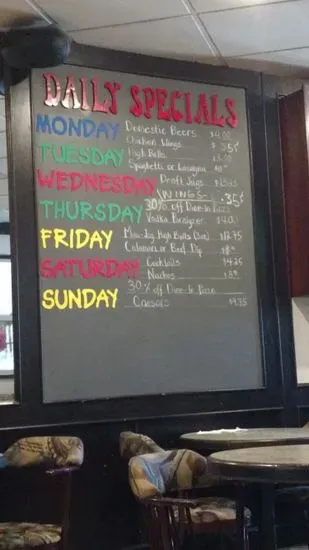 DAILY SPECIALS
MONDAY Domestic Beers $4.00
Chicken Wings $.35¢
TUESDAY High Balls
Spaghetti or Lasagna
WEDNESDAY Draft Jugs
WINGS .35¢
THURSDAY 30% off Dine-In
Vodka $4.00
FRIDAY High Balls $12.95
or Beef Dip
SATURDAY Cocktails $4.25
Nachos
SUNDAY 30% off Dine-In Pizza
Caesars $4.35